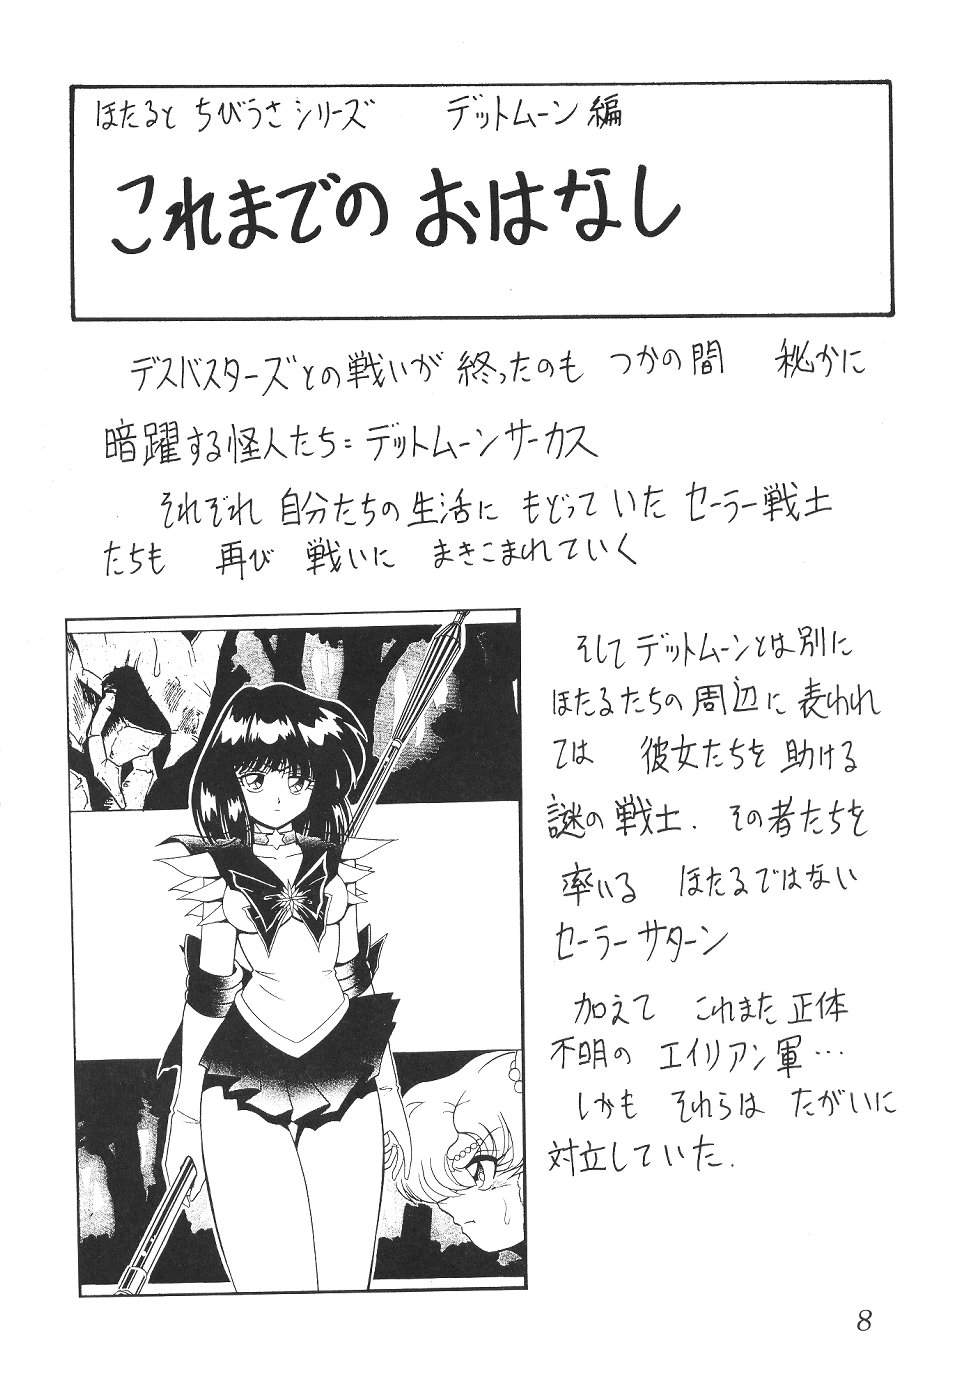 ほたると ちびうさシリーズ デットムーン編
これまでの おはなし
デスバスターズとの戦いが 終ったのも つかの間 秘かに
暗躍する怪人たち=デットムーンサーカス
それぞれ 自分たちの生活に もどっていた セーラー戦士
たちも 再び 戦いに まきこまれていく
そしてデットムーンとは別に
ほたるたちの周辺に表われ
ては 彼女たちを助ける
謎の戦士. その者たちを
率いる ほたるではない
セーラーサターン
加えて これまた正体
不明の エイリアン軍…
しかも それらは たがいに
対立していた.
8